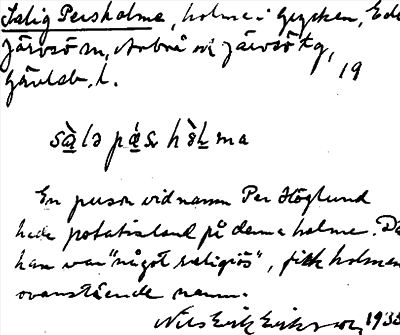 Salig Persholme, holme i Grycken, Ede
Järvsö sn, Arbrå och Järvsö tg,
Gävleb. l. 19
En person vid namn Per Höglund
hade potatisland på denna holme. Då
han var "något religiös", fick holmen
ovanstående namn.
Nils Erik Eriksson 1935